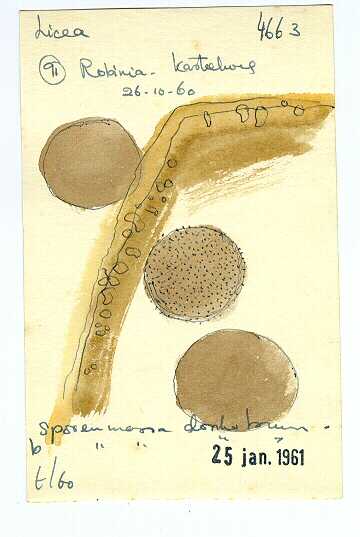 Licea 4663
91 Robinia - Kasteelweg
26-10-60
Sporenmassa donkerbruin.
b " " " "
25 jan. 1961
t/60